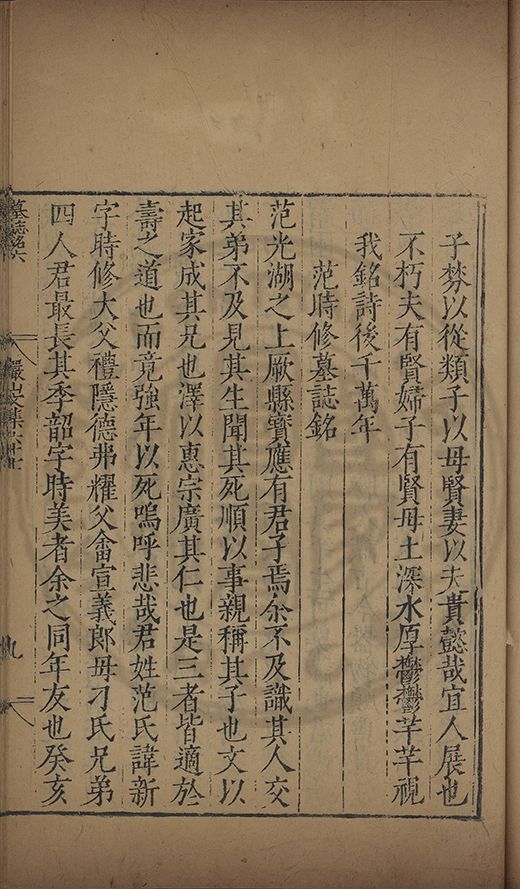 子棼以從類子以母賢妻以夫貴懿哉宜人展也
不朽夫有賢婦子有賢母土深水厚鬱鬱芊芊視
我銘詩後千萬年
范時修墓誌銘
范光湖之上厥縣寶應有君子焉余不及識其人交
其弟不及見其生聞其死順以事親稱其子也文以
起家成其兄也澤以惠宗廣其仁也是三者皆適於
壽之道也而竟強年以死嗚呼悲哉君姓范氏諱新
字時修大父禮隱德弗耀父畬宣義郎母刁氏兄弟
四人君最長其季韶字時美者余之同年友也癸亥
墓誌銘六
儼山文集六十七
九